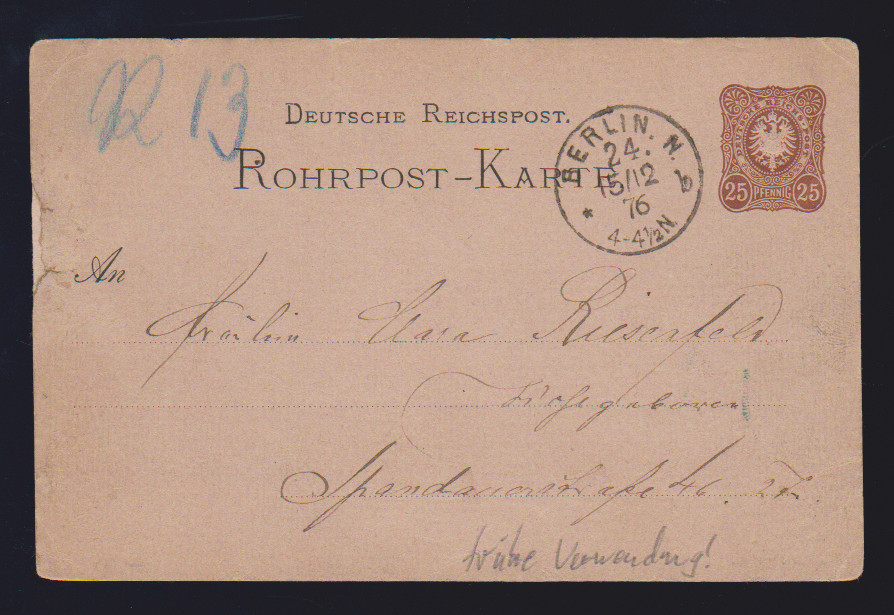 R 13
DEUTSCHE REICHSPOST.
ROHRPOST-KARTE
BERLIN. N.
24.
15/12
76
4-4½N.
*
b
DEUTSCHE REICHS-POST
25 PFENNIG 25
An
Fräulein Clara Riesenfeld
Hochgeboren
Spandauerstraße 46.
frühe Verwendung!